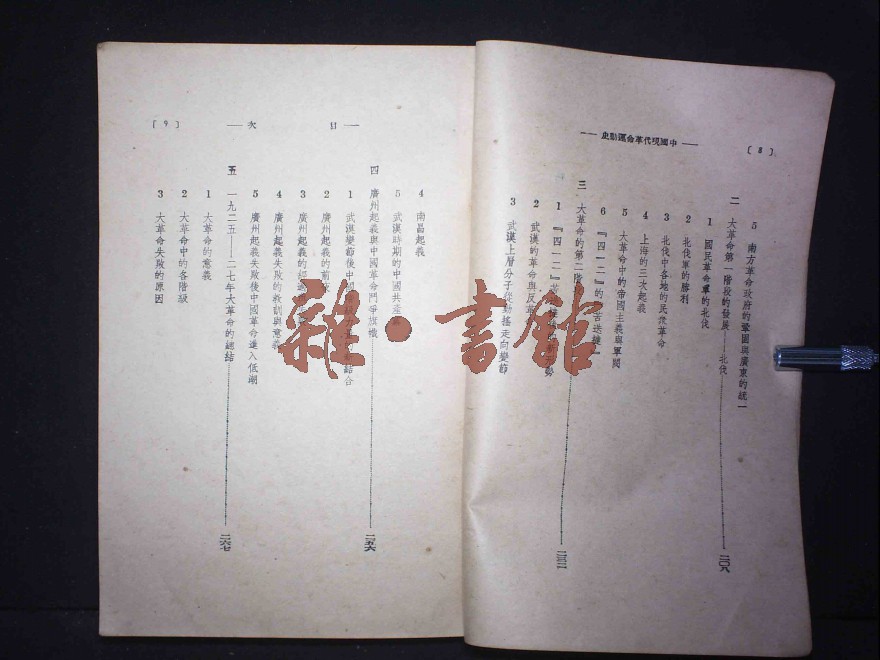 — 中國現代革命運動史 —
[8]
5 南方革命政府的鞏固與廣東的統一
二 大革命第一階段的發展——北伐 二〇八
1 國民革命軍的北伐
2 北伐軍的勝利
3 北伐中各地的民眾革命
4 上海的三次起義
5 大革命中的帝國主義與軍閥
6 『四一二』的
三 大革命的第二階
1 『四一二』
2 武漢的革命與反
3 武漢上層分子從動搖走向變節
[9]
— 目次 —
4 南昌起義
5 武漢時期的中國共產黨
四 廣州起義與中國革命鬥爭旗幟 二五六
1 武漢變節後中 結合
2 廣州起義的前夜
3 廣州起義的
4 廣州起義失敗的教訓與意義
5 廣州起義失敗後中國革命進入低潮
五 一九二五——二七年大革命的總結 二六七
1 大革命的意義
2 大革命中的各階級
3 大革命失敗的原因
雜·書館